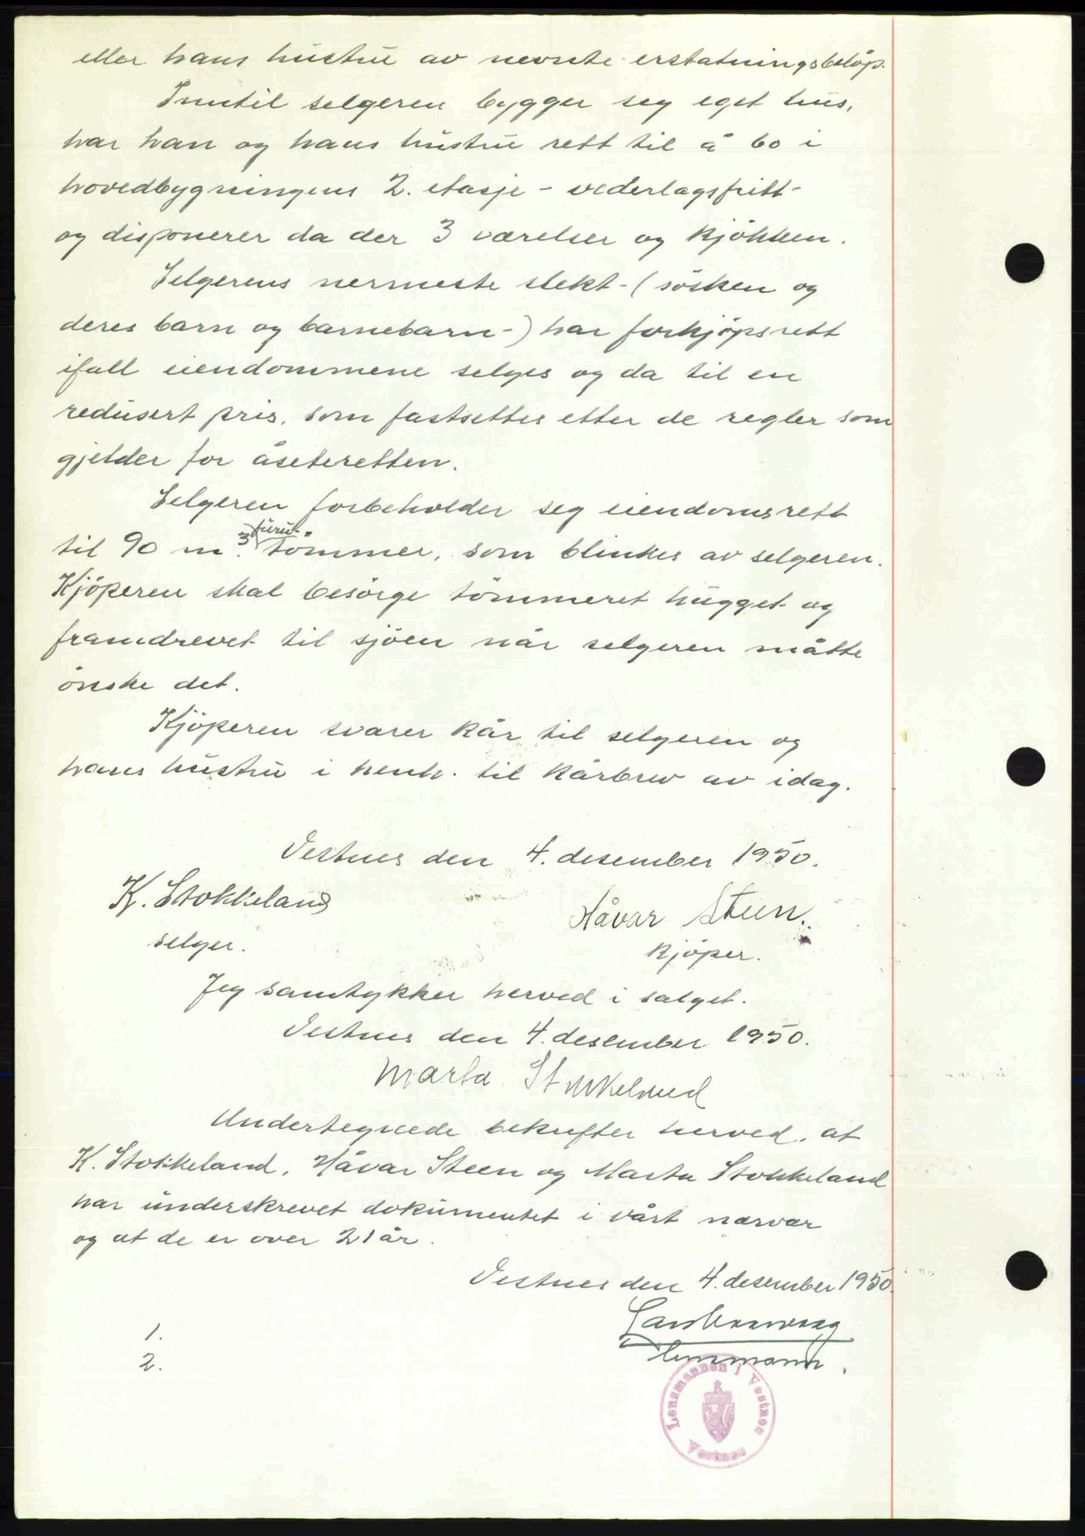 eller hans hustru av nevnte erstatningsbeløp.
Inntil selgeren bygger seg eget hus,
har han og hans hustru rett til å bo i
hovedbygningens 2. etasje - vederlagsfritt -
og disponerer da der 3 værelser og kjökken.
Selgerens nermeste slekt - ( sösken og
deres barn og barnebarn - ) har forkjöpsrett
ifall eiendommene selges og da til en
redusert pris, som fastsettes etter de regler som
gjelder for åseteretten.
Selgeren forbeholder seg eiendomsrett
til 90 m³. furu-tömmer, som blinkes av selgeren.
Kjöperen skal besörge tömmeret hugget og
framdrevet til sjöen når selgeren måtte
önske det.
Kjöperen svarer kår til selgeren og
hans hustru i henh. til kårbrev av idag.
Vestnes den 4. desember 1950.
K. Stokkeland Håvar Steen.
selger. kjöper.
Jeg samtykker herved i salget.
Vestnes den 4. desember 1950.
Marta Stokkeland
Undertegnede bekrefter herved, at
K. Stokkeland, Håvar Steen og Marta Stokkeland
har underskrevet dokumentet i vårt nærvær
og at de er over 21 år.
Vestnes den 4. desember 1950.
1.
2.
Lensmannen i Vestnes
Vestnes